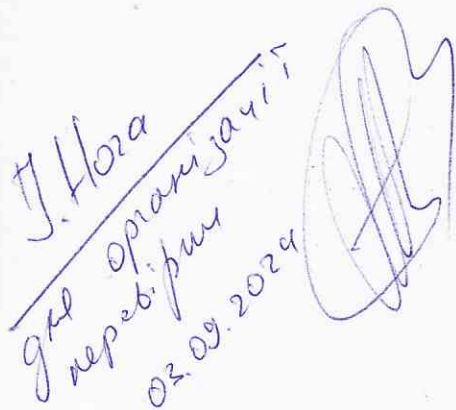 І. Нога
для організації
перевірки
03.09.2024